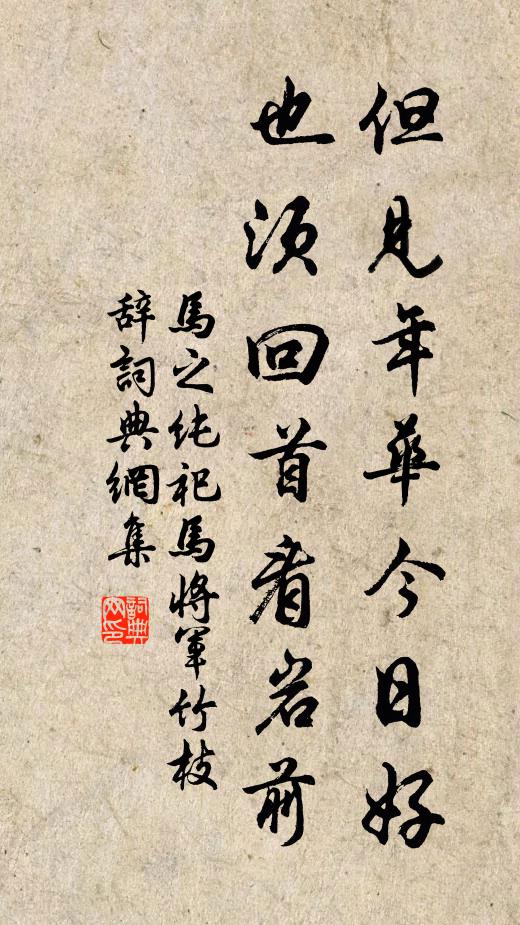 但見年華今日好
也須回首看岩前
馬之純祀馬將軍竹枝
辭詞典網集
詞典
网印